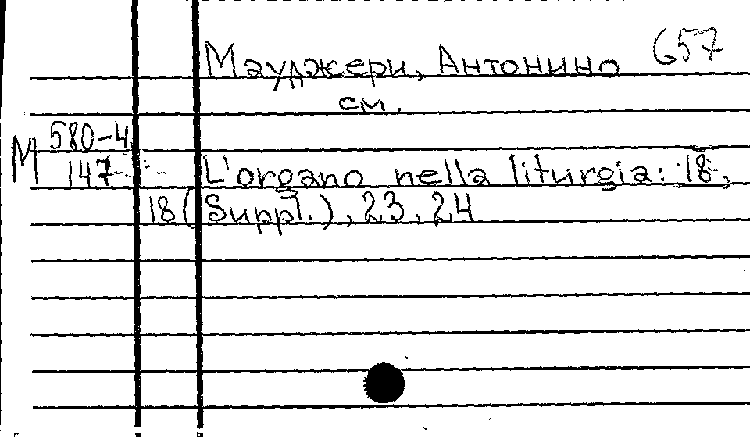 Мауджери, Антонино 657
см.
М 580-4
147
L'organo nella liturgia: 18,
18 (Suppl.), 23, 24